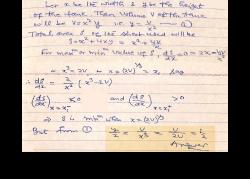 Let x be the width & y be the height
of the tank. Then Volume V of the tank
will be V = x²y i.e. y = V/x² — ①
Total area S of the sheet used will be
S = x² + 4xy = x² + 4V/x
For max^m or min^m value of S, dS/dx = 0 = 2x - 4V/x²
∴ x³ = 2V ⇒ x = (2V)^(1/3) = x₁
∴ dS/dx = 2/x² (x³ - 2V)
(dS/dx) <0 and (dS/dx) >0
⇒ S is min^m when x = (2V)^(1/3)
But from ① y/x = V/x³ = V/2V = 1/2
Answer